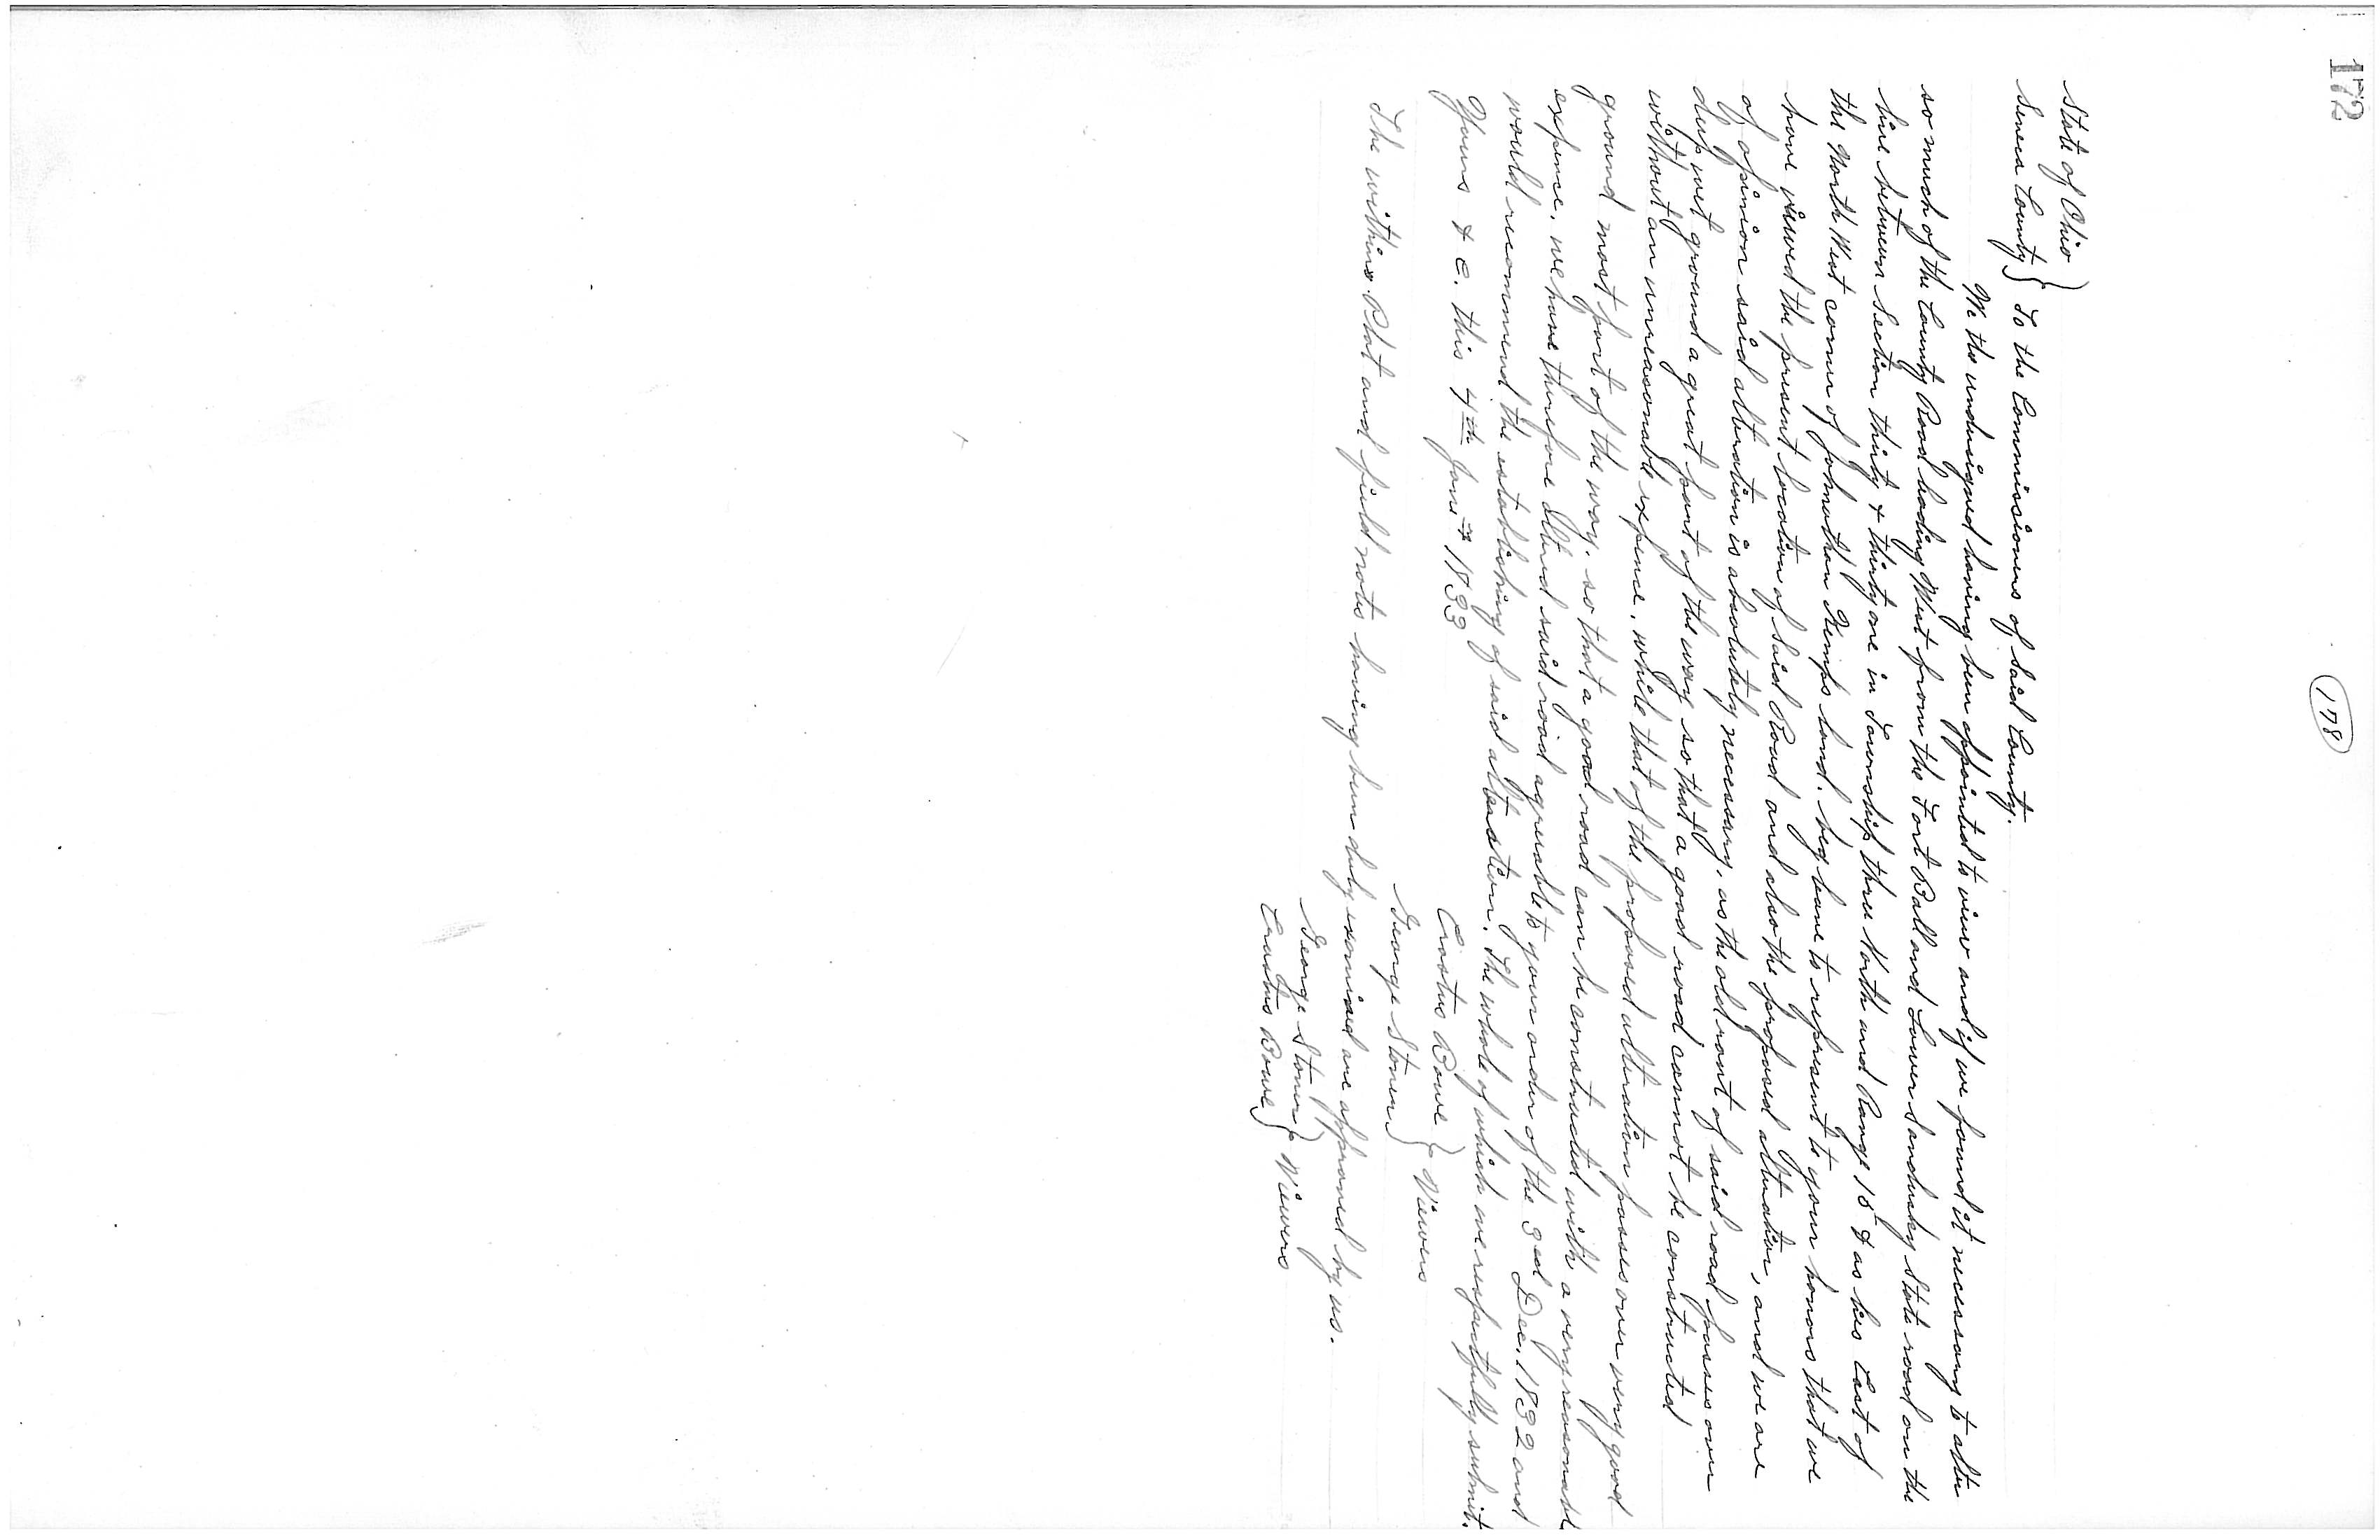 172
178
State of Ohio }
Seneca County } To the Commissioners of Said County.
We the undersigned having been appointed to view and if we found it necessary to alter
so much of the County Road leading West from the Fort Ball and Lower Sandusky State road on the
line between Section thirty & thirty one in Township three North and Range 15 & as lies East of
the North West corner of Johnathan Kemps land. beg leave to represent to your honors that we
have viewed the present location of Said Road and also the proposed alteration, and we are
of opinion said alteration is absolutely necessary, as the old rout of said road passes over
deep wet ground a great part of the way so that a good road cannot be constructed
without an unreasonable expence, while that of the proposed alteration passes over very good
ground most part of the way. so that a good road can be constructed with a very reasonable
expence, we have therefore altered said road agreeable to your order of the 3rd Dec. 1832 and
would recommend the establishing of said alteration. The whole of which we respectfully submit.
Yours & c. this 4th Jany 1833
Erastus Bowe }
George Stoner } Viewers
The within Plat and field nots having been duly examined are approved by us.
George Stoner }
Erastus Bowe } Viewers